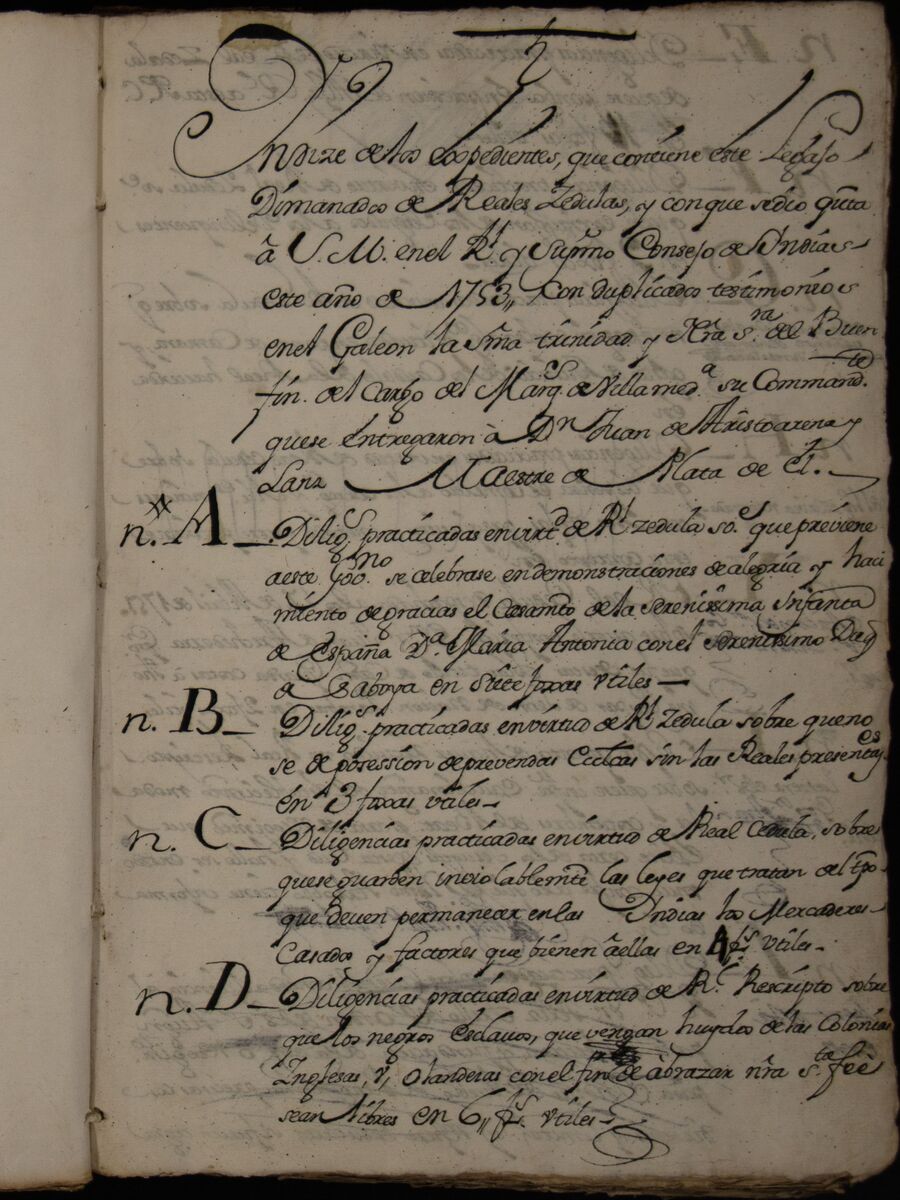 Yndize de los expedientes, que contiene este Legajo
Dimanados de Reales Zedulas, y con que se dio quta
à S. M. en el Rl. y Supmo Consejo de Yndias
este año de 1753,, con duplicados testimonios
en el Galeon la Sma trinidad y Nra Sra. del Buen
fin. del cargo del Marqs. de Villa meda. su Commandte.
que se entregaron à Dn Juan de Aristoarena y
Lanz Maestre de Plata de èl.
n. A — Diligs. practicadas en virtd. de Rl zedula soe. que previene
a este Govno. se celebrase en demonstraciones de alegria y haci
miento de gracias el casamto de la serenissima Infanta
de España Da. Maria Antonia con el serenissimo Duq
de Saboya en siete foxas utiles —
n. B — Diligs. practicadas en virtud de Rl zedula sobre que no
se de posession de prevendas Eccleas sin las Reales presentaes.
en 3 foxas utiles —
n. C — Diligencias practicadas en virtud de Real Cedula, sobre
que se guarden inviolablemte las leyes que tratan del tpo.
que deven permanecer en las Yndias los Mercaderes
Casados y factores que bienen à ellas en 4 fs. utiles —
n. D — Diligencias practicadas en virtud de Rl. Rescripto sobre
que los negros Esclavos, que vengan huydos de las Colonias
Inglesas, y, olandesas con el fin de abrazar nra sta. feè
sean libres en 6,, fs. utiles —